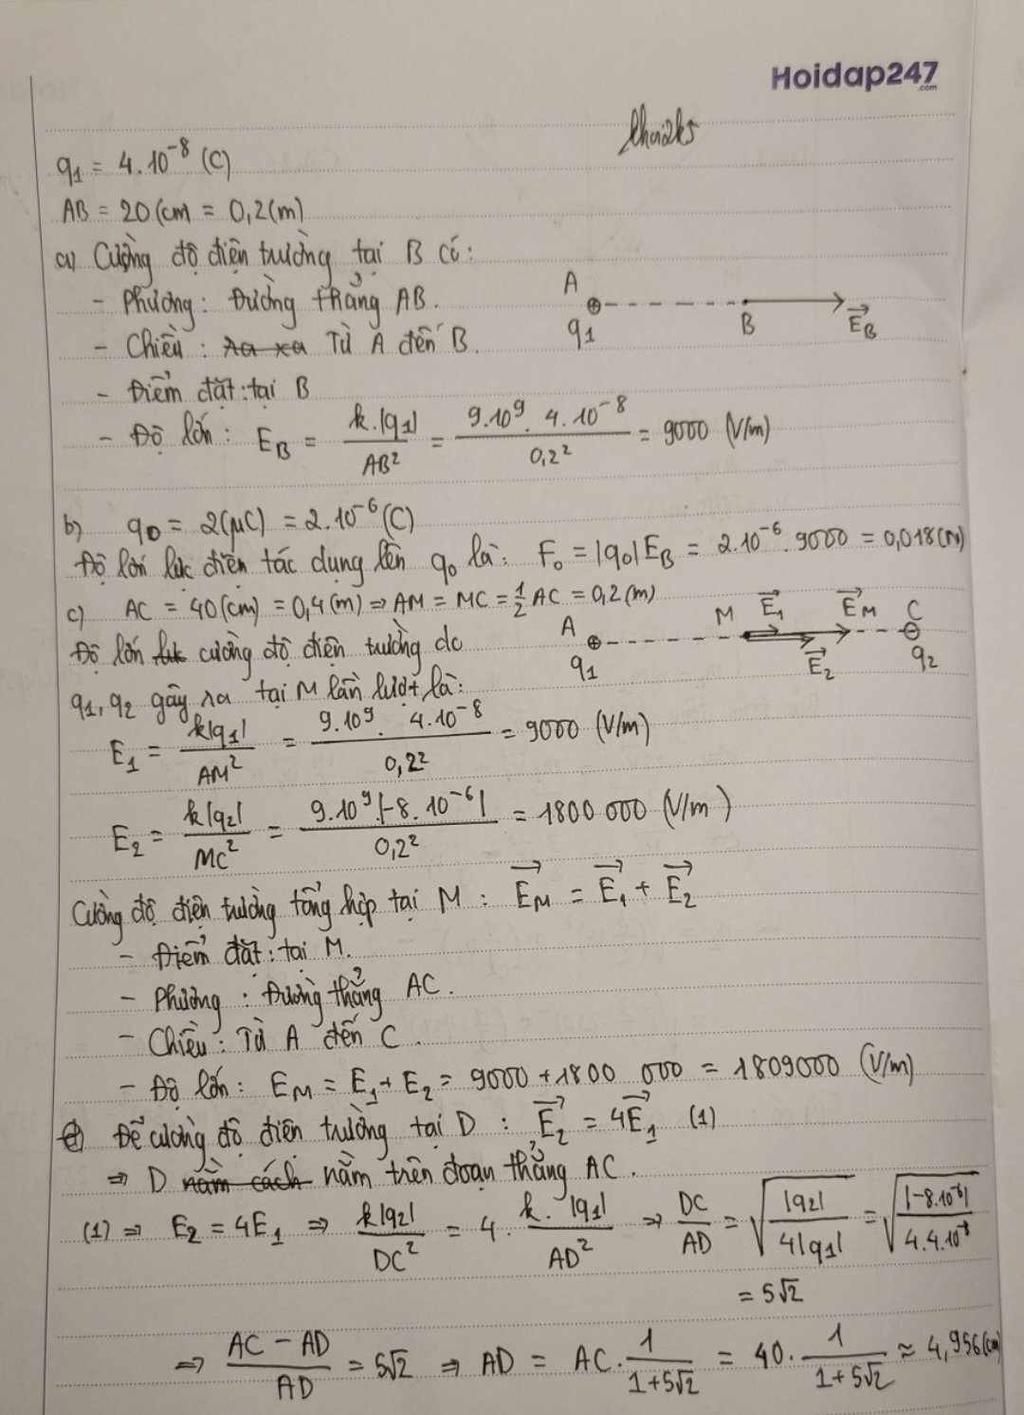 Hoidap247
.com
q₁ = 4.10⁻⁸ (C)
AB = 20(cm = 0,2(m)
a) Cường độ điện trường tại B có:
- Phương: Đường thẳng AB.
- Chiều: Ra xa Từ A đến B.
- Điểm đặt: tại B
- Độ lớn: E_B = k.|q₁| / AB² = 9.10⁹. 4.10⁻⁸ / 0,2² = 9000 (V/m)
A q₁ B E_B→
b) q₀ = 2(μC) = 2.10⁻⁶(C)
Độ lớn lực điện tác dụng lên q₀ là: F₀ = |q₀|E_B = 2.10⁻⁶.9000 = 0,018(N)
c) AC = 40(cm) = 0,4(m) ⇒ AM = MC = 1/2 AC = 0,2(m)
Độ lớn lực cường độ điện trường do
q₁, q₂ gây ra tại M lần lượt là:
A q₁ M E₁→ E₂→ E_M→ C q₂
E₁ = k|q₁| / AM² = 9.10⁹. 4.10⁻⁸ / 0,2² = 9000 (V/m)
E₂ = k|q₂| / MC² = 9.10⁹.|-8.10⁻⁶| / 0,2² = 1800 000 (V/m)
Cường độ điện trường tổng hợp tại M: E_M→ = E₁→ + E₂→
- Điểm đặt: tại M.
- Phương: Đường thẳng AC.
- Chiều: Từ A đến C.
- Độ lớn: E_M = E₁ + E₂ = 9000 + 1800 000 = 1809000 (V/m)
Để cường độ điện trường tại D: E₂→ = 4E₁→ (1)
⇒ D nằm cách nằm trên đoạn thẳng AC.
(1) ⇒ E₂ = 4E₁ ⇒ k|q₂| / DC² = 4. k.|q₁| / AD² ⇒ DC / AD = √(|q₂| / 4|q₁|) = √(|-8.10⁻⁶| / 4.4.10⁻⁸)
= 5√2
⇒ AC - AD / AD = 5√2 ⇒ AD = AC. 1 / 1+5√2 = 40. 1 / 1+5√2 ≈ 4,956(cm)